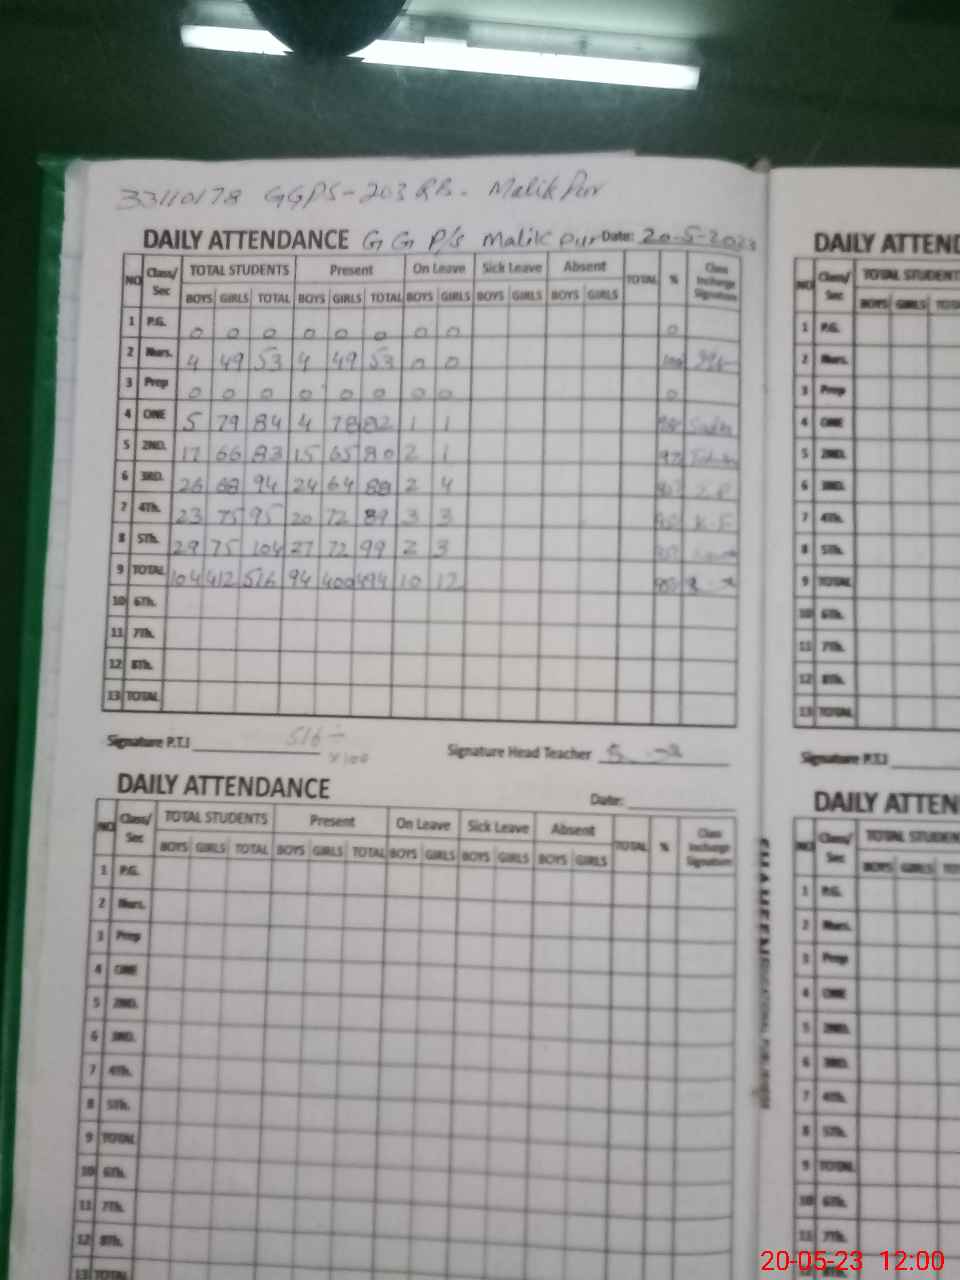 33110178 GGPS-203 RB. Malik Pur
DAILY ATTENDANCE G G P/s Malik pur Date: 20-5-2023
NO Class/Sec TOTAL STUDENTS Present On Leave Sick Leave Absent TOTAL % Class Incharge Signature
BOYS GIRLS TOTAL BOYS GIRLS TOTAL BOYS GIRLS BOYS GIRLS BOYS GIRLS
1 P.G. 0 0 0 0 0 0 0 0 0
2 Nurs. 4 49 53 4 49 53 0 0 100
3 Prep 0 0 0 0 0 0 0 0 0
4 ONE 5 79 84 4 78 82 1 1
5 2ND. 17 66 83 15 65 80 2 1
6 3RD. 26 68 94 24 64 88 2 4
7 4Th. 23 75 95 20 72 89 3 3
8 5Th. 29 75 104 27 72 99 2 3
9 TOTAL 104 412 516 94 400 494 10 12
10 6Th.
11 7Th.
12 8Th.
13 TOTAL
516 ÷
Signature P.T.I x100 Signature Head Teacher
DAILY ATTENDANCE Date:
NO Class/Sec TOTAL STUDENTS Present On Leave Sick Leave Absent TOTAL % Class Incharge Signature
BOYS GIRLS TOTAL BOYS GIRLS TOTAL BOYS GIRLS BOYS GIRLS BOYS GIRLS
1 P.G.
2 Nurs.
3 Prep
4 ONE
5 2ND.
6 3RD.
7 4Th.
8 5Th.
9 TOTAL
10 6Th.
11 7Th.
12 8Th.
13 TOTAL
DAILY ATTEND
NO Class/Sec TOTAL STUDENTS
BOYS GIRLS
1 P.G.
2 Nurs.
3 Prep
4 ONE
5 2ND.
6 3RD.
7 4Th.
8 5Th.
9 TOTAL
10 6Th.
11 7Th.
12 8Th.
13 TOTAL
Signature P.T.I
DAILY ATTEN
NO Class/Sec TOTAL STUDEN
BOYS GIRLS
1 P.G.
2 Nurs.
3 Prep
4 ONE
5 2ND.
6 3RD.
7 4Th.
8 5Th.
9 TOTAL
10 6Th.
11 7Th.
20-05-23 12:00